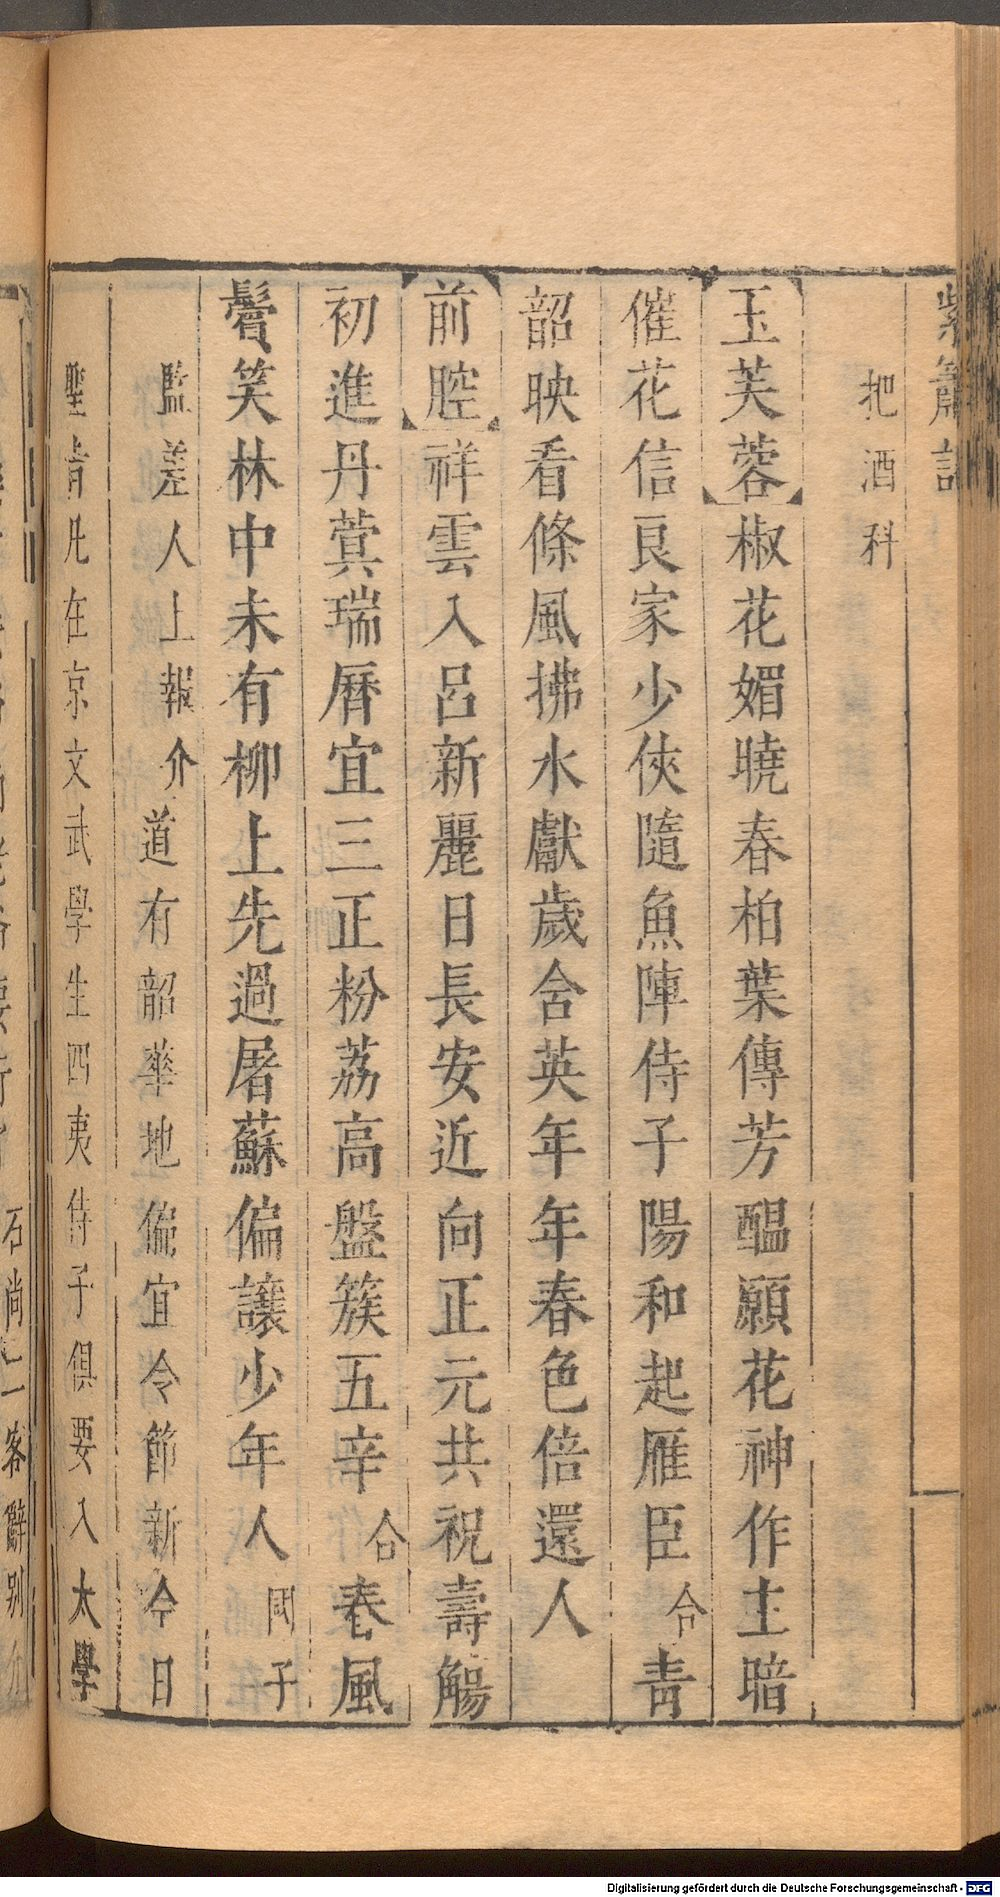 紫簫記
把酒科
玉芙蓉椒花媚曉春柏葉傳芳醖願花神作主暗
催花信良家少俠隨魚陣侍子陽和起雁臣合青
韶映看條風拂水獻歲含英年年春色倍還人
前腔祥雲入呂新麗日長安近向正元共祝壽觴
初進丹蓂瑞曆宜三正粉荔高盤簇五辛合春風
鬢笑林中未有柳上先過屠蘇偏讓少年人國子
監差人上報介道有韶華地偏宜令節新今日
聖旨凡在京文武學生四夷侍子俱要入太學
石尚二客辭別
Digitalisierung gefördert durch die Deutsche Forschungsgemeinschaft - DFG